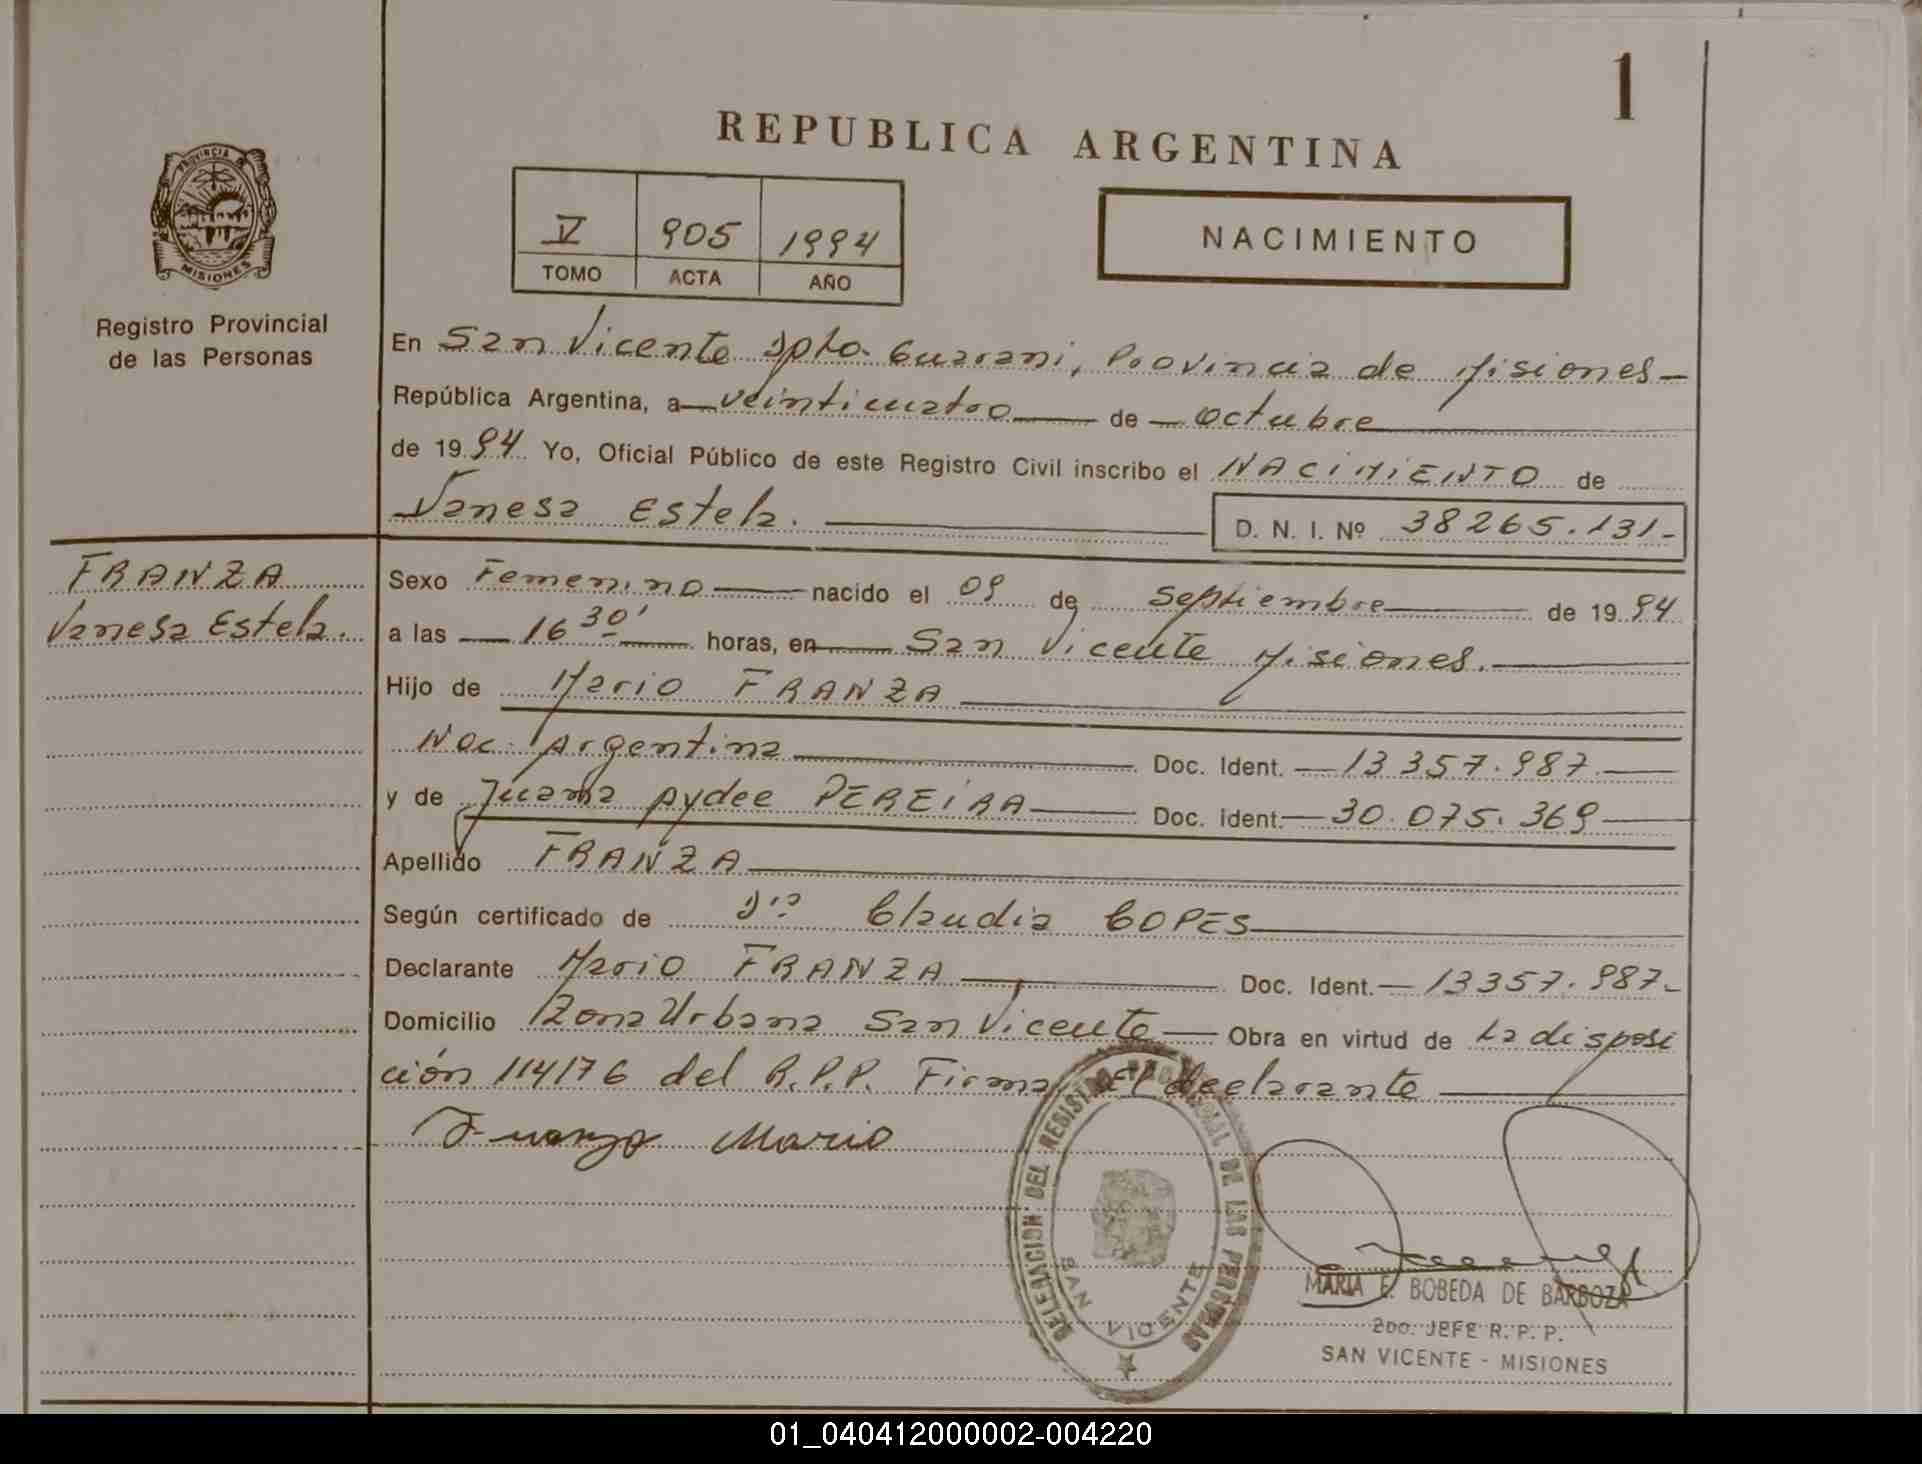 1
REPUBLICA ARGENTINA
PROVINCIA DE
MISIONES
Registro Provincial
de las Personas
V 905 1994
TOMO ACTA AÑO
NACIMIENTO
En San Vicente Dpto. Guarani, Provincia de Misiones
República Argentina, a veinticuatro de octubre
de 1994 Yo, Oficial Público de este Registro Civil inscribo el NACIMIENTO de
Vanesa Estela. D. N. I. Nº 38265.131-
FRANZA
Vanesa Estela.
Sexo Femenino nacido el 09 de Septiembre de 1994
a las 16 30' horas, en San Vicente Misiones.
Hijo de Mario FRANZA
Nac. Argentina Doc. Ident. 13357.987
y de Juana Aydee PEREIRA Doc. Ident. 30.075.369
Apellido FRANZA
Según certificado de Dra Claudia COPES
Declarante Mario FRANZA Doc. Ident. 13357.987-
Domicilio Zona Urbana San Vicente Obra en virtud de La disposi
ción 114/76 del R.P.P. Firma el declarante
Franza Mario
DELEGACION DEL REGISTRO PROVINCIAL DE LAS PERSONAS
SAN VICENTE
MARIA E. BOBEDA DE BARBOZA
2DO. JEFE R. P. P.
SAN VICENTE - MISIONES
01_040412000002-004220